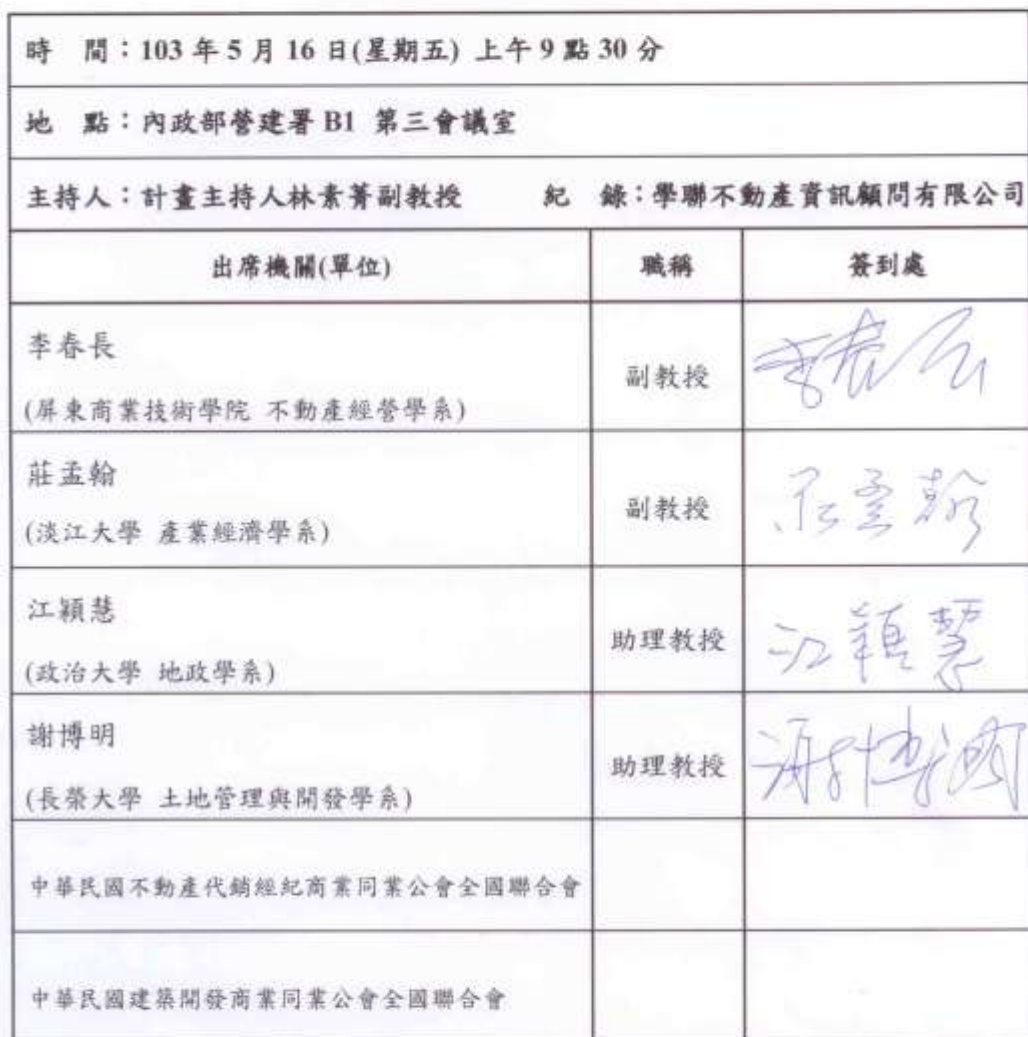 時 間：103 年 5 月 16 日(星期五) 上午 9 點 30 分
地 點：內政部營建署 B1 第三會議室
主持人：計畫主持人林素菁副教授 紀 錄：學聯不動產資訊顧問有限公司
出席機關(單位) 職稱 簽到處
李春長
(屏東商業技術學院 不動產經營學系)
副教授
莊孟翰
(淡江大學 產業經濟學系)
副教授
莊孟翰
江穎慧
(政治大學 地政學系)
助理教授
江穎慧
謝博明
(長榮大學 土地管理與開發學系)
助理教授
謝博明
中華民國不動產代銷經紀商業同業公會全國聯合會
中華民國建築開發商業同業公會全國聯合會